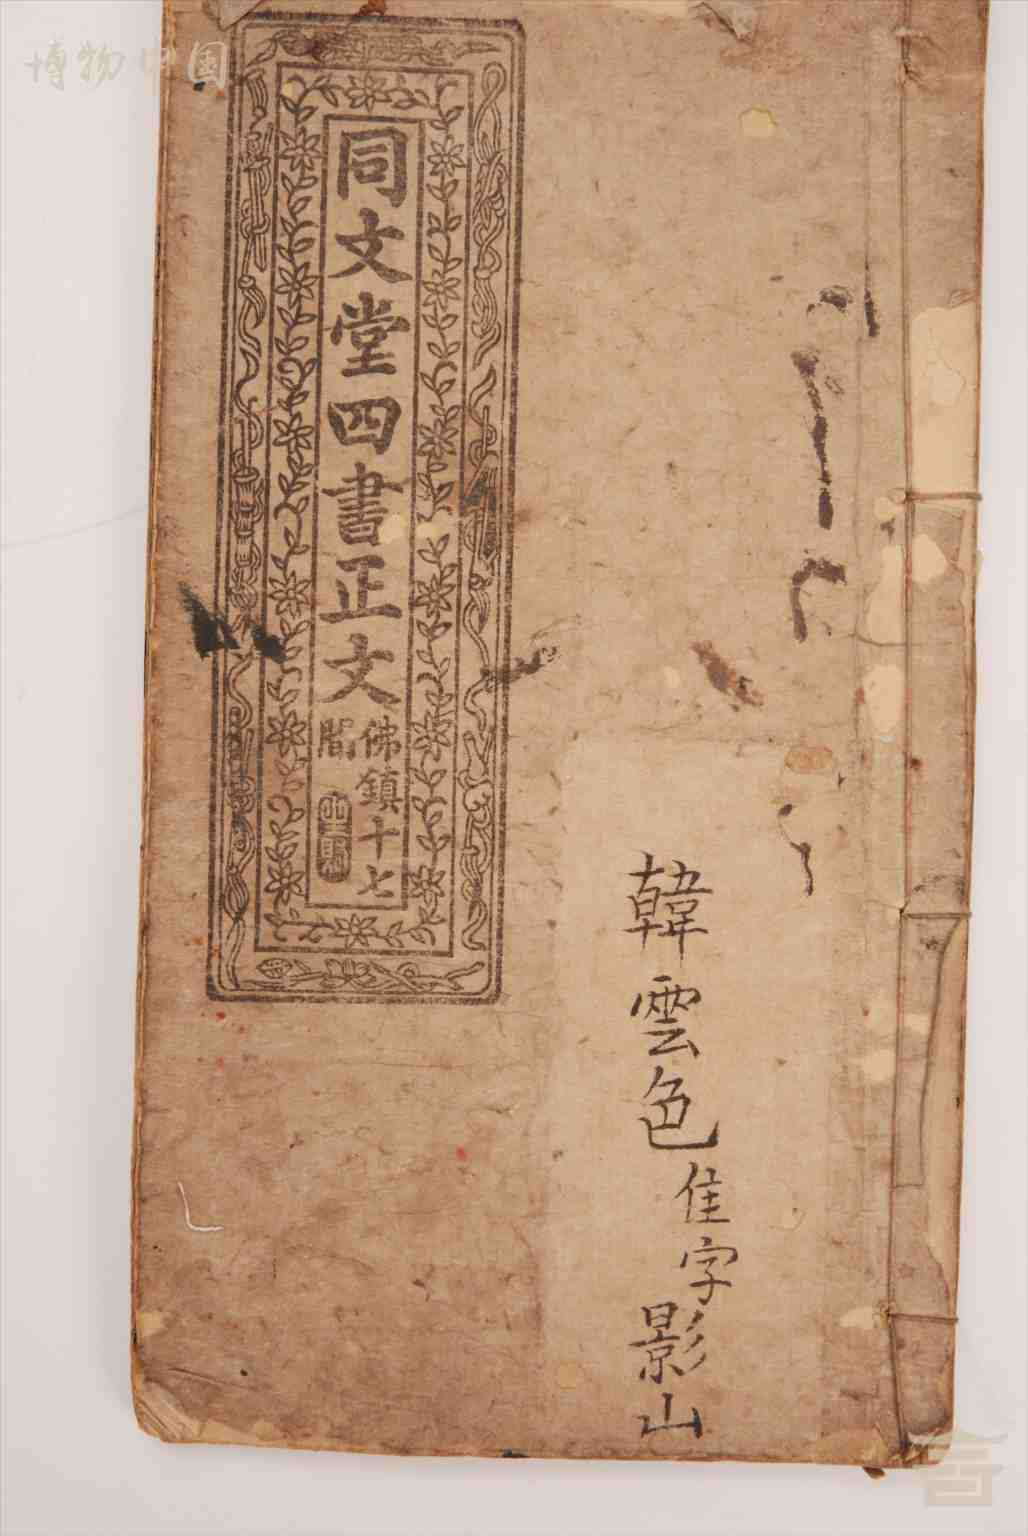 博物中国
同文堂四書正文
佛鎮十七
間
韓雲色
佳字
影山